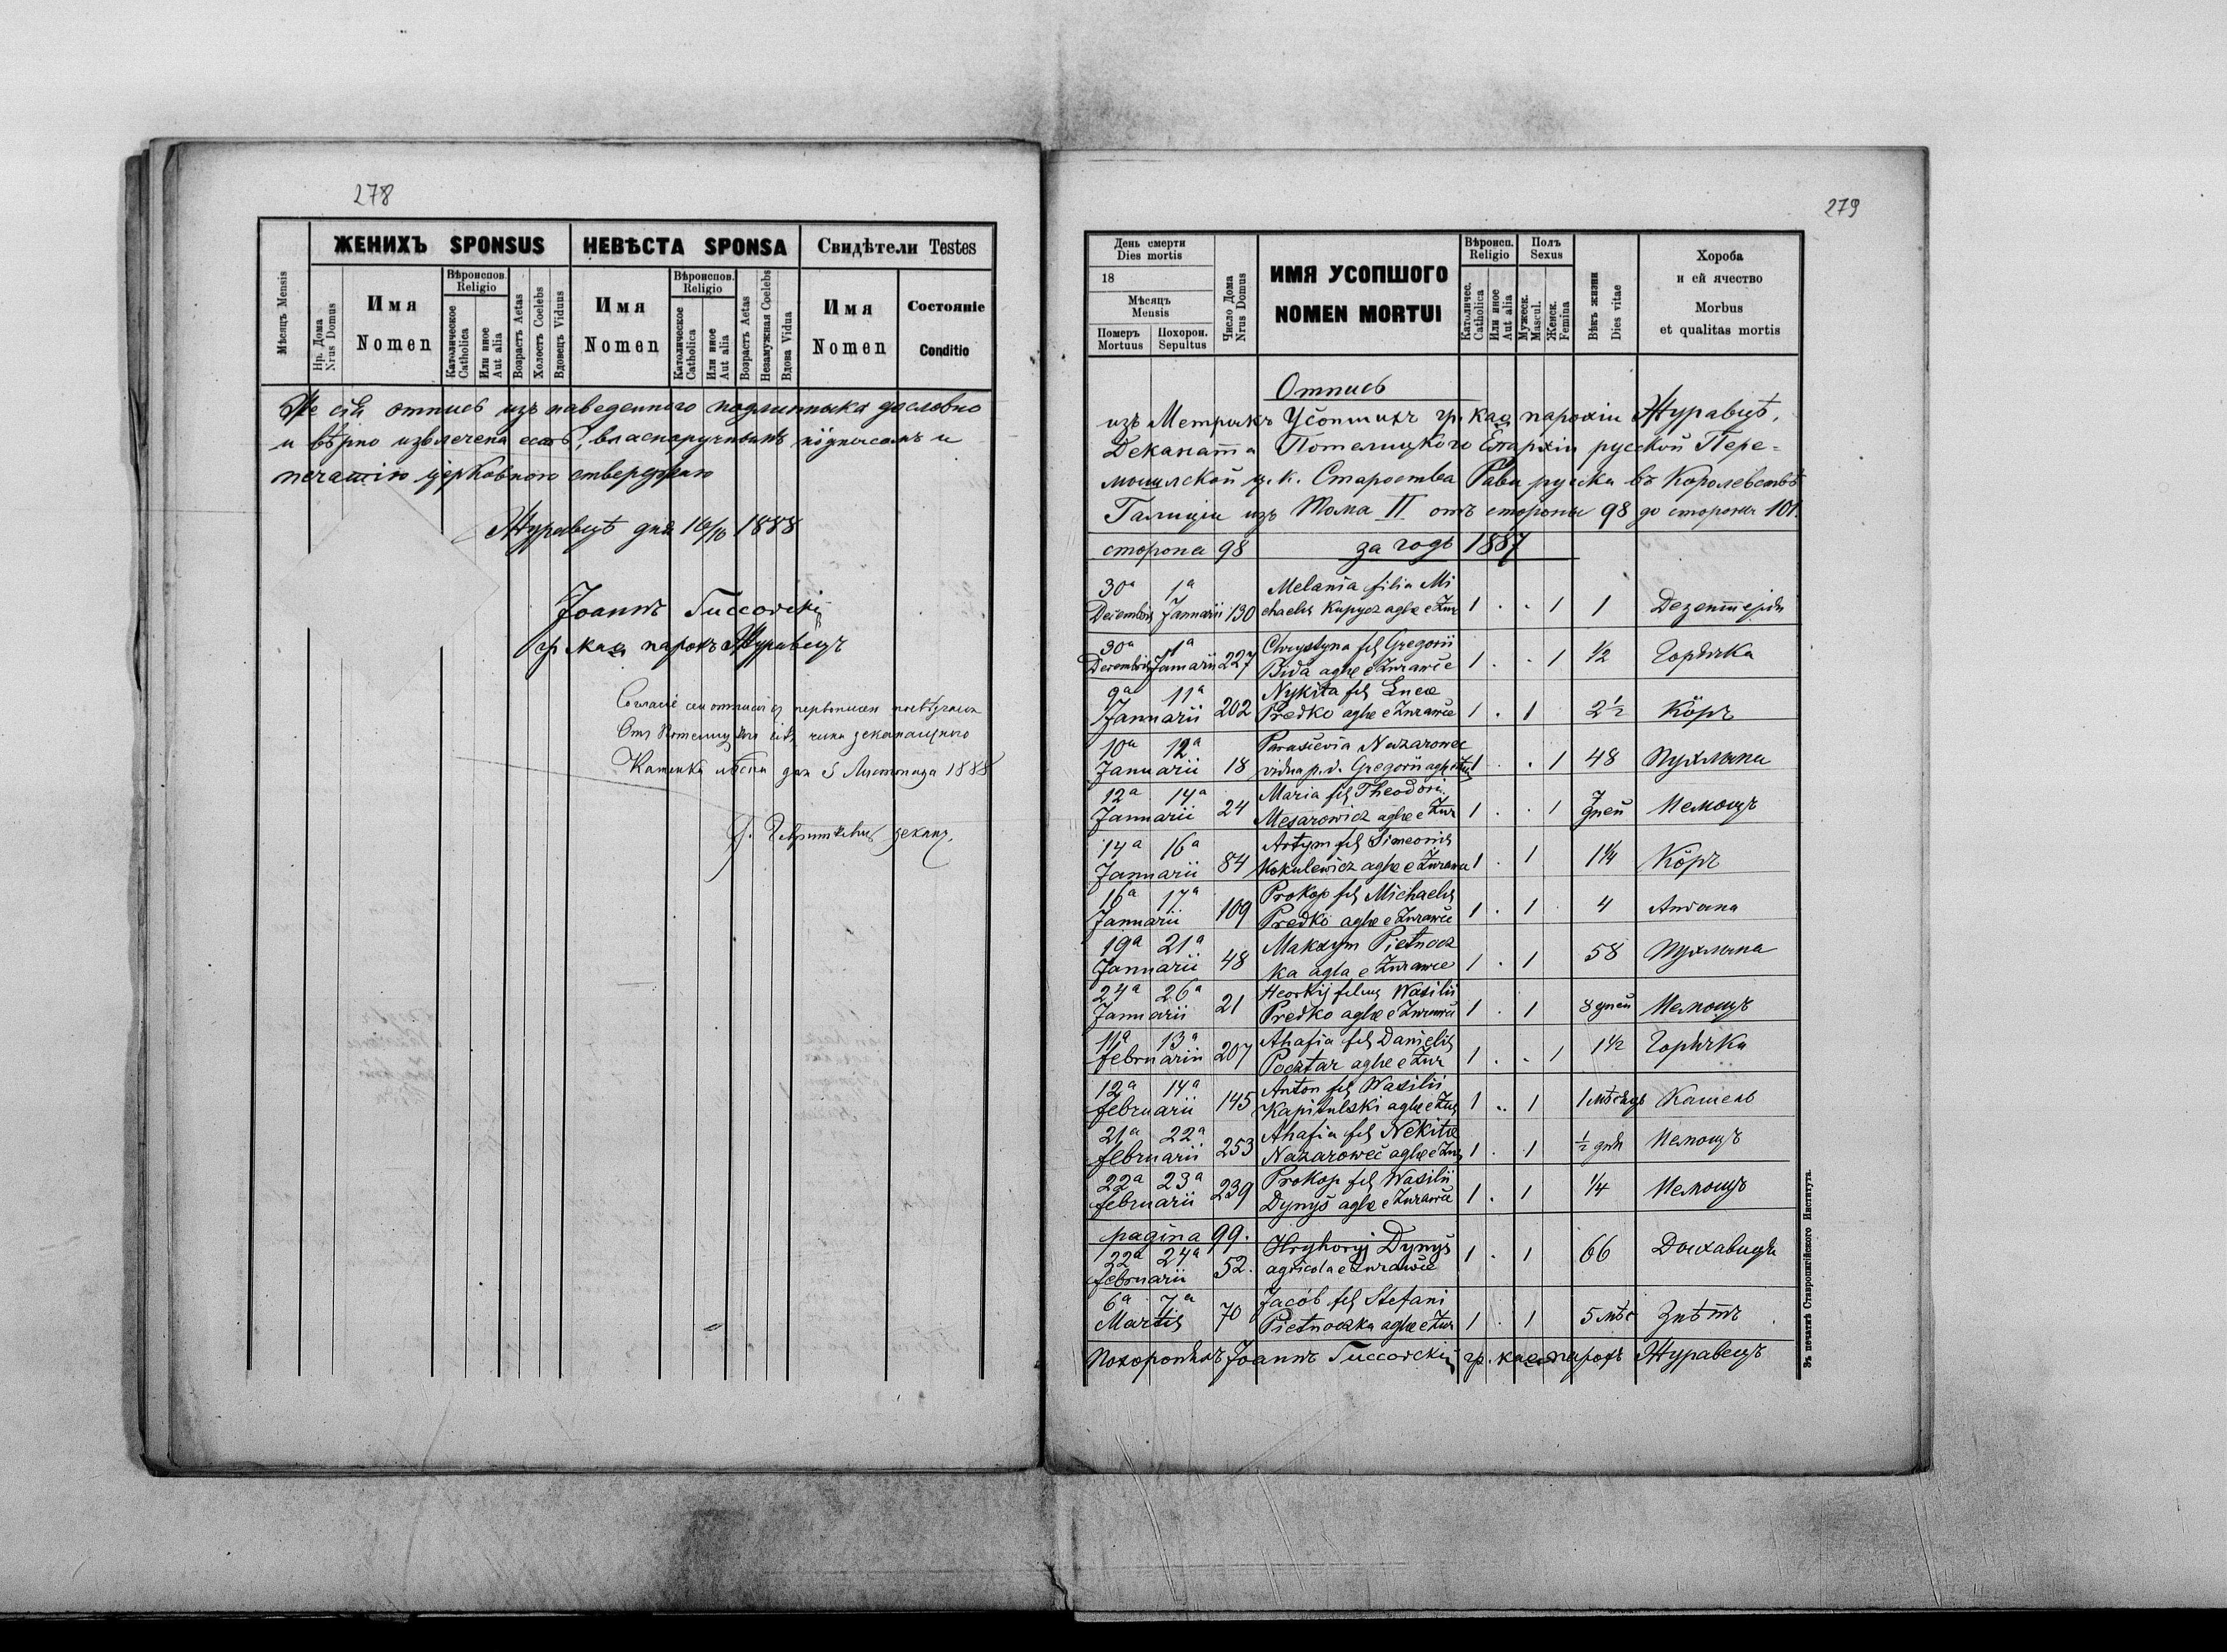 278
ЖЕНИХЪ SPONSUS
НЕВѢСТА SPONSA
Свидѣтели Testes
Мѣсяць Mensis
Нр. Дома
Nrus Domus
Имя
Nomen
Вѣроиспов.
Religio
Католическое
Catholica
Или иное
Aut alia
Возрастъ Aetas
Холостъ Coelebs
Вдовецъ Viduus
Имя
Nomen
Вѣроиспов.
Religio
Католическое
Catholica
Или иное
Aut alia
Возрастъ Aetas
Незамужная Coelebs
Вдова Vidua
Имя
Nomen
Состоянiе
Conditio
Же сiя отпись изъ наведенного подлинныка дословно
и вѣрно извлечена есть, власноручнымъ пôдписомъ и
печатiю церковною стверджаю
Журавцѣ дня 16/10 1888
Joannъ
гр. каѳ парохъ Журавецъ
Каменка дня 5 Листопада 1888
деканъ.
279
День смерти
Dies mortis
18
Мѣсяць
Mensis
Померъ
Mortuus
Похорон.
Sepultus
Число Дома
Nrus Domus
ИМЯ УСОПШОГО
NOMEN MORTUI
Вѣроисп.
Religio
Католичес.
Catholica
Или иное
Aut alia
Полъ
Sexus
Мужеск.
Mascul.
Женск.
Femina
Вѣкъ жизни
Dies vitae
Хороба
и ей ячество
Morbus
et qualitas mortis
Отпись
изъ Метрыкъ Усопшихъ гр. каѳ парохiи Журавцѣ,
Деканата Потелицкого Епархiи русской Пере=
мошлской ц. к. Староства Рава руска въ Королевствѣ
Галицiи изъ Тома II отъ стороны 98 до стороны 101.
сторона 98 за годъ 1887
30a 1a Melania filia Mi
Decembris Januarii 130 chaelis Kupycz aglae e Żur 1 . . 1 1
30a 1a Chrystyna fil Gregorii
Decembris Januarii 227 Bida aglae e Żurawce 1 . . 1 1/2 Горячка
9a 11a Nykita fil Lucae
Januarii 202 Predko aglae e Żurawce 1 . 1 2 1/2 Кôръ
10a 12a Parascevia Nazarowec
Januarii 18 vidua p. d. Gregorii 1 . . 1 48 Пухлина
12a 14a Maria fil Theodori
Januarii 24 Mesarowicz aglae e Żur 1 . . 1 7 дней Немощъ
14a 16a Artym fil Simeonis
Januarii 84 Kokulewicz aglae e Żurawce 1 . 1 1 1/4 Кôръ
16a 17a Prokop fil Michaelis
Januarii 109 Predko aglae e Żurawce 1 . 1 . 4
19a 21a Maksym Pietnocz
Januarii 48 ka agla e Żurawce 1 . 1 58 Пухлина
24a 26a Heorhij filius Wasilii
Januarii 21 Predko aglae e Żurawce 1 . 1 8 дней Немощъ
11a 13a Ahafia fil Danielis
februarii 207 Pocztar aglae e Żur 1 . . 1 1 1/2 Горячка
12a 14a Anton fil Wasilii
februarii 145 Kapitulski aglae e Żur 1 .. 1 1 мѣсяцъ Кашель
21a 22a Ahafia fil Nekitae
februarii 253 Nazarowec aglae e Żur 1 . 1 1/2 дня Немощъ
22a 23a Prokop fil Wasilii
februarii 239 Dynys aglae e Żurawce 1 . 1 1/4 Немощъ
pagina 99.
22a 24a Hryhoryj Dynys
februarii 52. agricola e Żurawce 1 . 1 66 Дыхавиця
6a 7a Jacob fil Stefani
Martis 70 Pietnoczka aglae e Żur 1 . 1 5 мѣс
Joannъ гр. каѳ парохъ Журавецъ
Зъ печатнѣ Ставропигiйского Института.